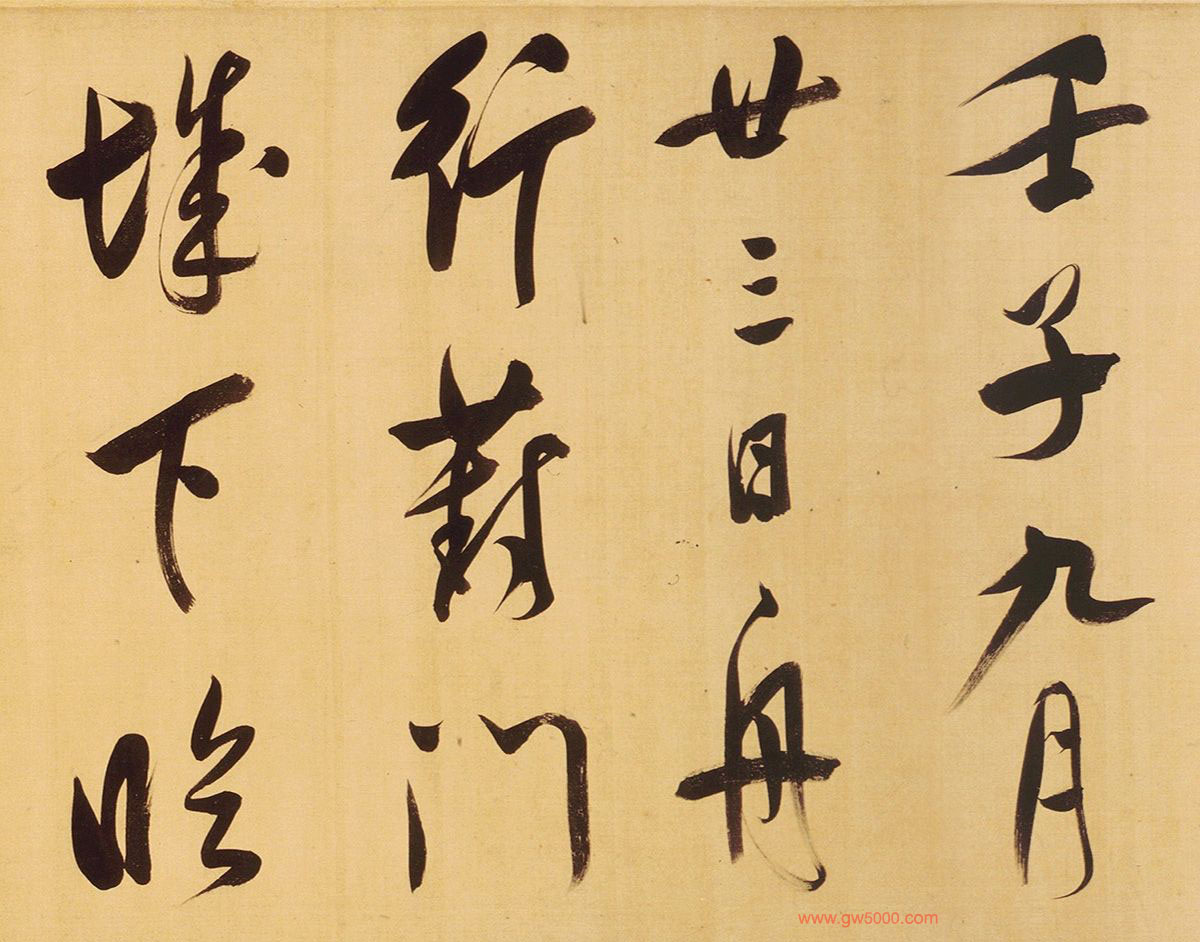 壬子九月
廿三日舟
行葑門
城下臨
www.gw5000.com